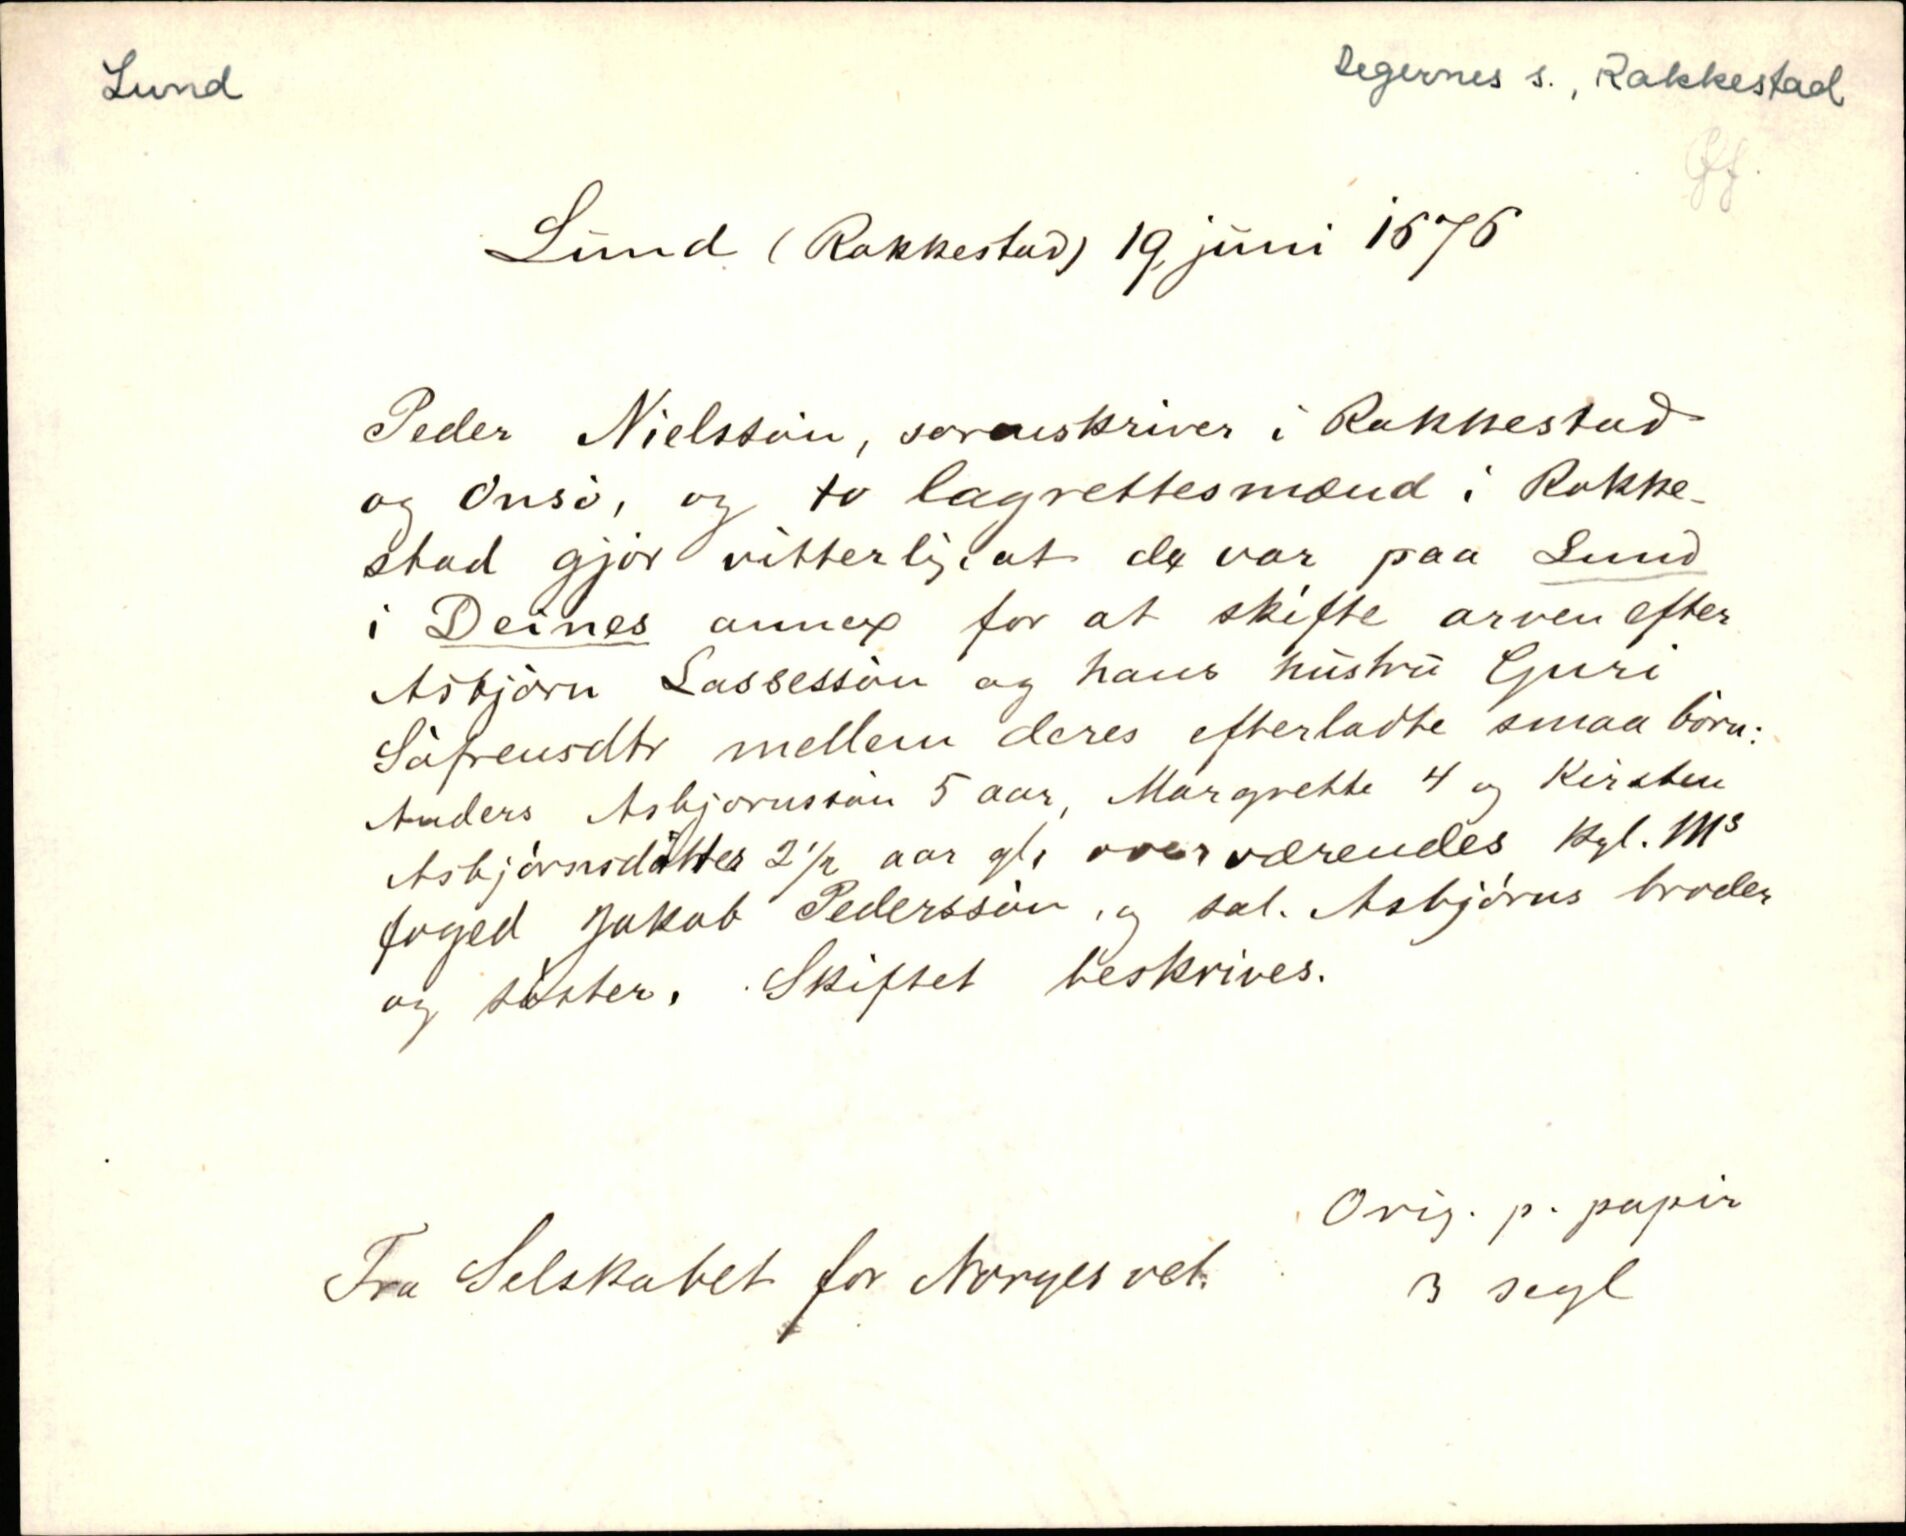 Lund
Degernes s., Rakkestad
Lund (Rakkestad) 19 juni 1676
Peder Nielssön, sorenskriver i Rakkestad
og Onsö, og to lagrettesmænd i Rakke-
stad gjör vitterlig at de var paa Lund
i Deines annex for at skifte arven efter
Asbjörn Lassessön og hans hustru Guri
Söfrensdtr mellem deres efterladte smaa börn:
Anders Asbjörnssön 5 aar, Margrette 4 og Kirsten
Asbjörnsdötter 2 1/2 aar gl. overværendes kgl. Ms
foged Jakob Pederssön, og sal. Asbjörns broder
og söster. Skiftet beskrives.
Orig. p. papir
Fra Selskabet for Norges vel.
3 segl